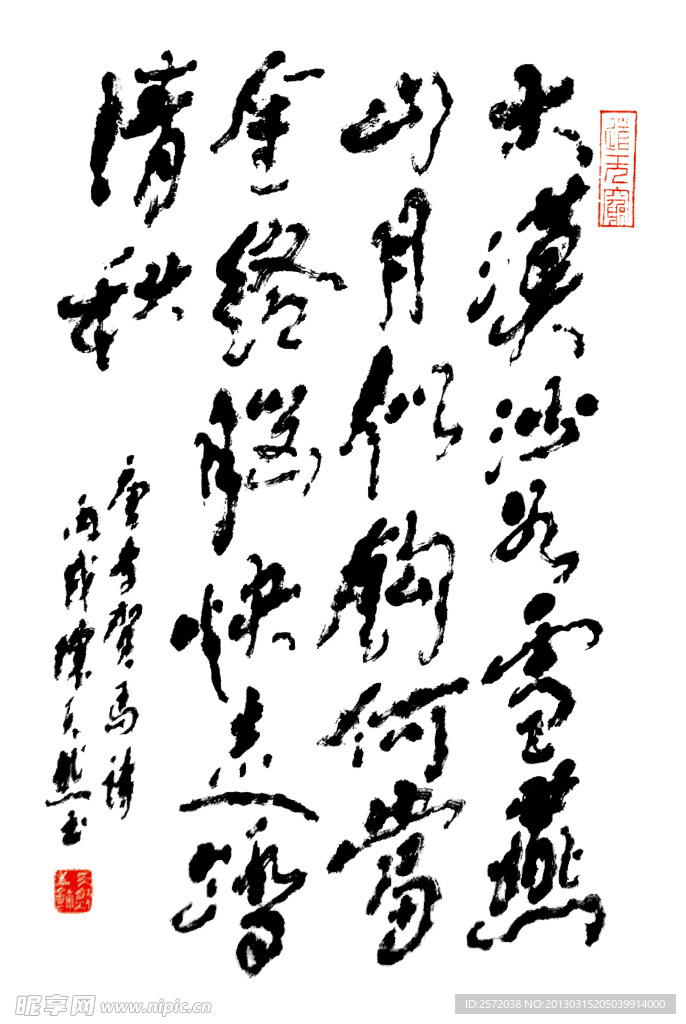 大漠沙如雪燕
山月似鉤何當
金絡腦快走踏
清秋
唐李賀馬詩
丙戌陳天然书
昵享网 www.nipic.cn
ID:2572038 NO:20130315205039914000